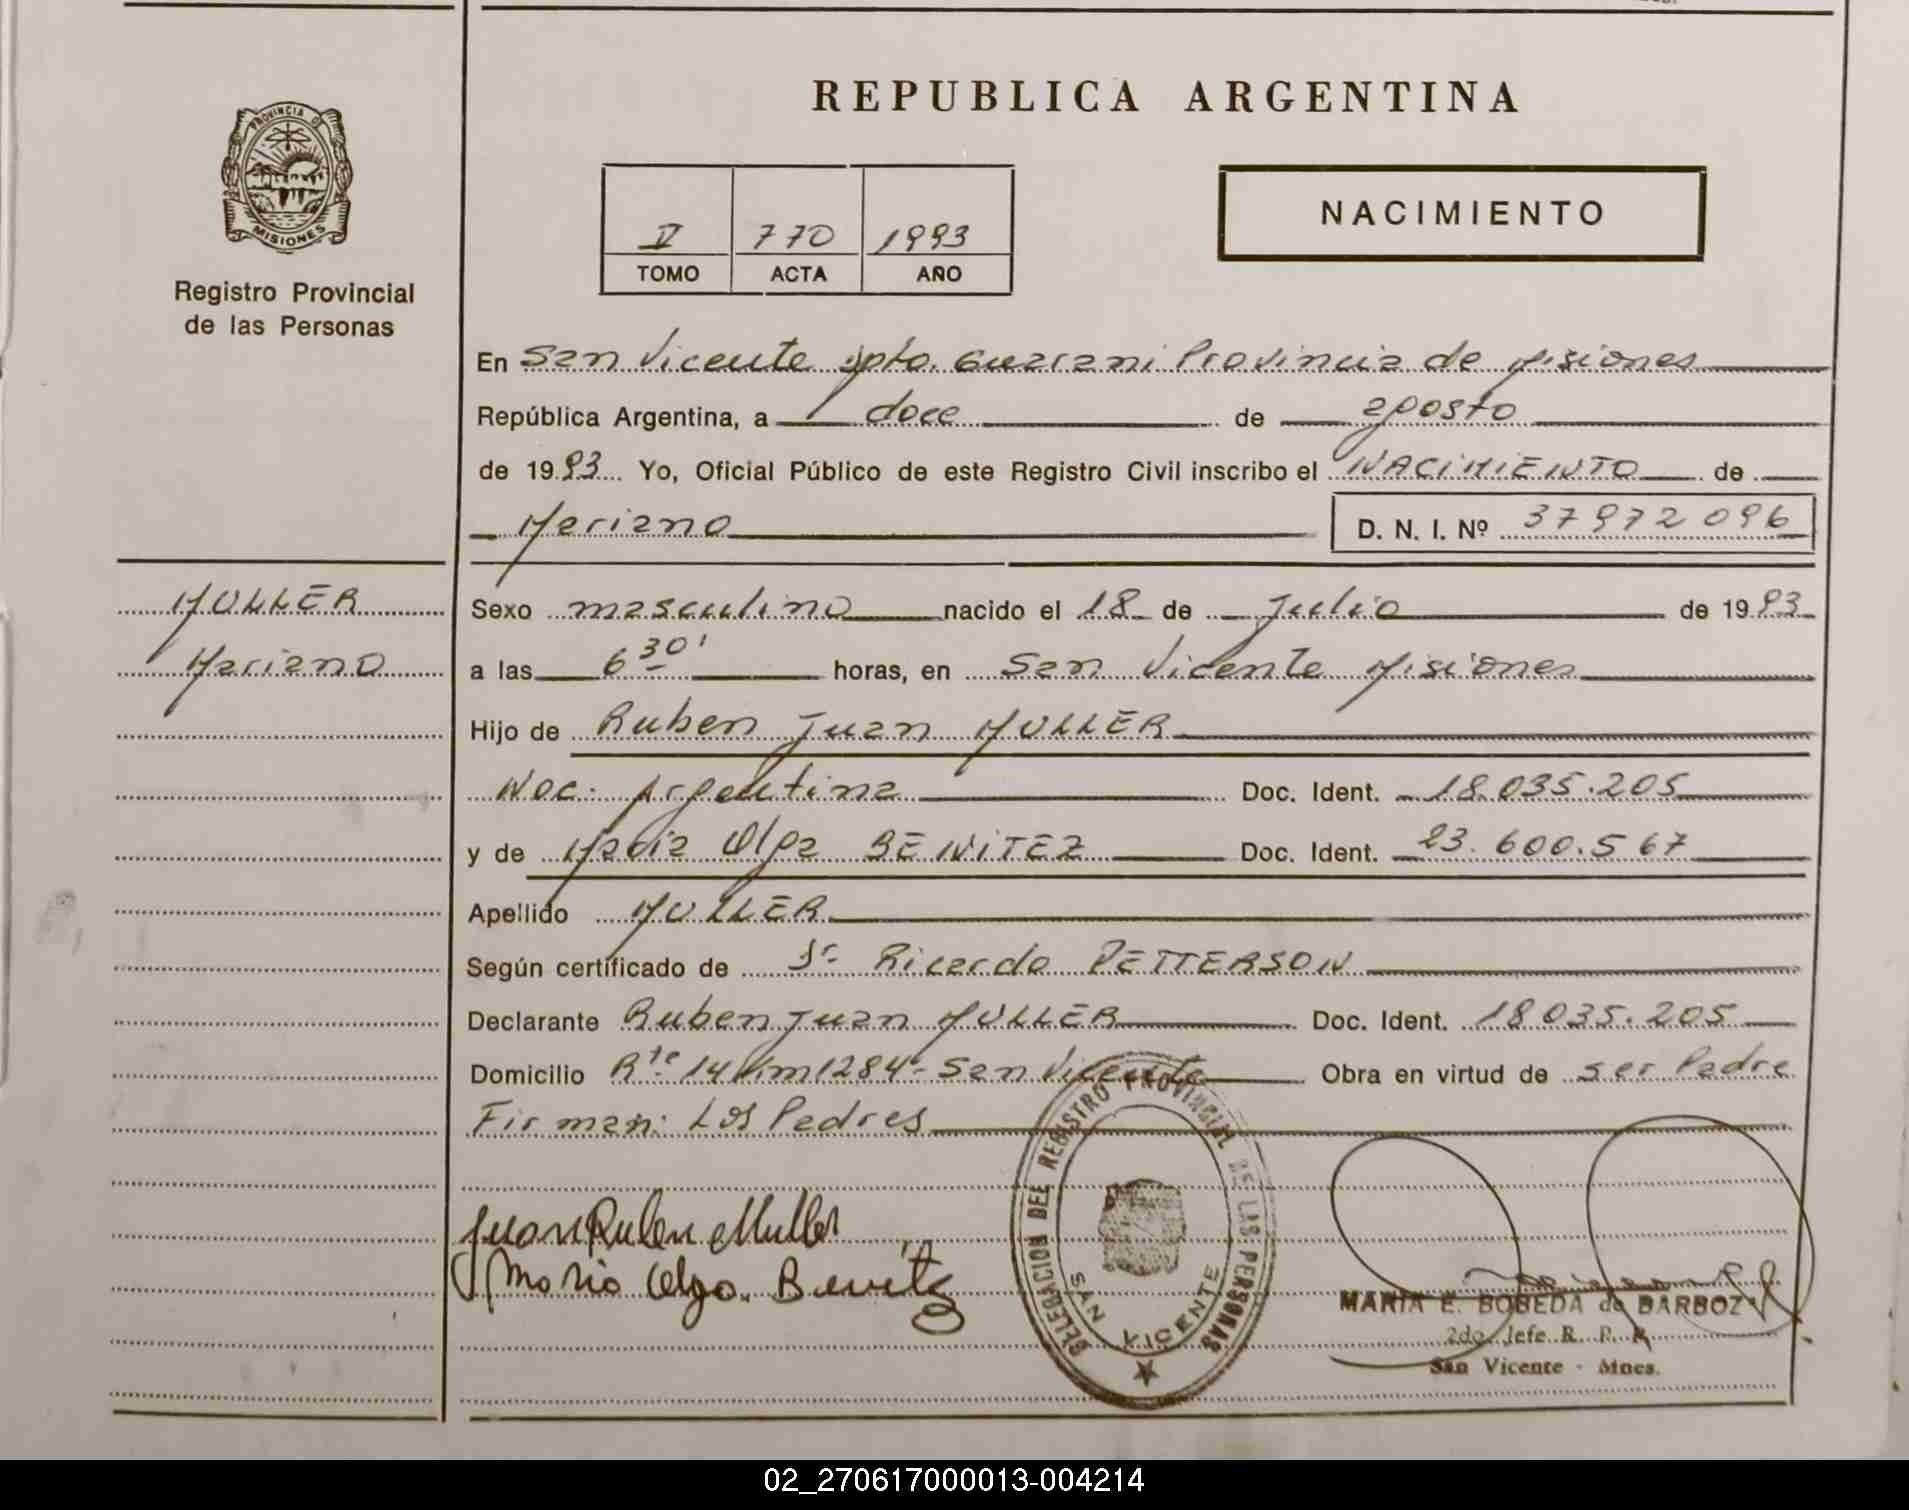 REPUBLICA ARGENTINA
PROVINCIA D
MISIONES
Registro Provincial
de las Personas
V 770 1993
TOMO ACTA AÑO
NACIMIENTO
En San Vicente Dpto. Guarani Provincia de Misiones
República Argentina, a doce de agosto
de 1993 Yo, Oficial Público de este Registro Civil inscribo el NACIMIENTO de
Mariano D. N. I. Nº 37972096
MULLER
Mariano
Sexo masculino nacido el 18 de Julio de 1993
a las 6 30' horas, en San Vicente Misiones
Hijo de Ruben Juan MULLER
Nac: Argentina Doc. Ident. 18.035.205
y de Maria Olga BENITEZ Doc. Ident. 23.600.567
Apellido MULLER
Según certificado de Dr. Ricardo PETTERSON
Declarante Ruben Juan MULLER Doc. Ident. 18035.205
Domicilio Rta 14 Km 1284 - San Vicente Obra en virtud de ser Padre
Firman: Los Padres
Juan Ruben Muller
Maria Olga Benitez
DELEGACION DEL REGISTRO PROVINCIAL DE LAS PERSONAS
SAN VICENTE
MARIA E. BOBEDA de BARBOZA
2do. Jefe R. P. P.
San Vicente - Mnes.
02_270617000013-004214